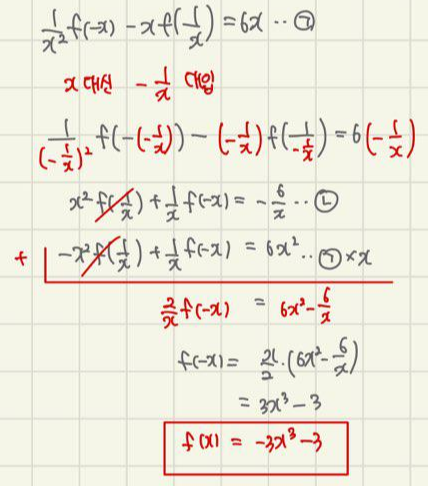 1/x² f(-x) - x f(1/x) = 6x ·· ㉠
x 대신 - 1/x 대입
1/(-1/x)² f(-(-1/x)) - (-1/x) f(1/(-1/x)) = 6(-1/x)
x² f(1/x) + 1/x f(-x) = - 6/x ·· ㉡
+ -x² f(1/x) + 1/x f(-x) = 6x² ·· ㉠×x
2/x f(-x) = 6x² - 6/x
f(-x) = x/2 · (6x² - 6/x)
= 3x³ - 3
f(x) = -3x³ - 3